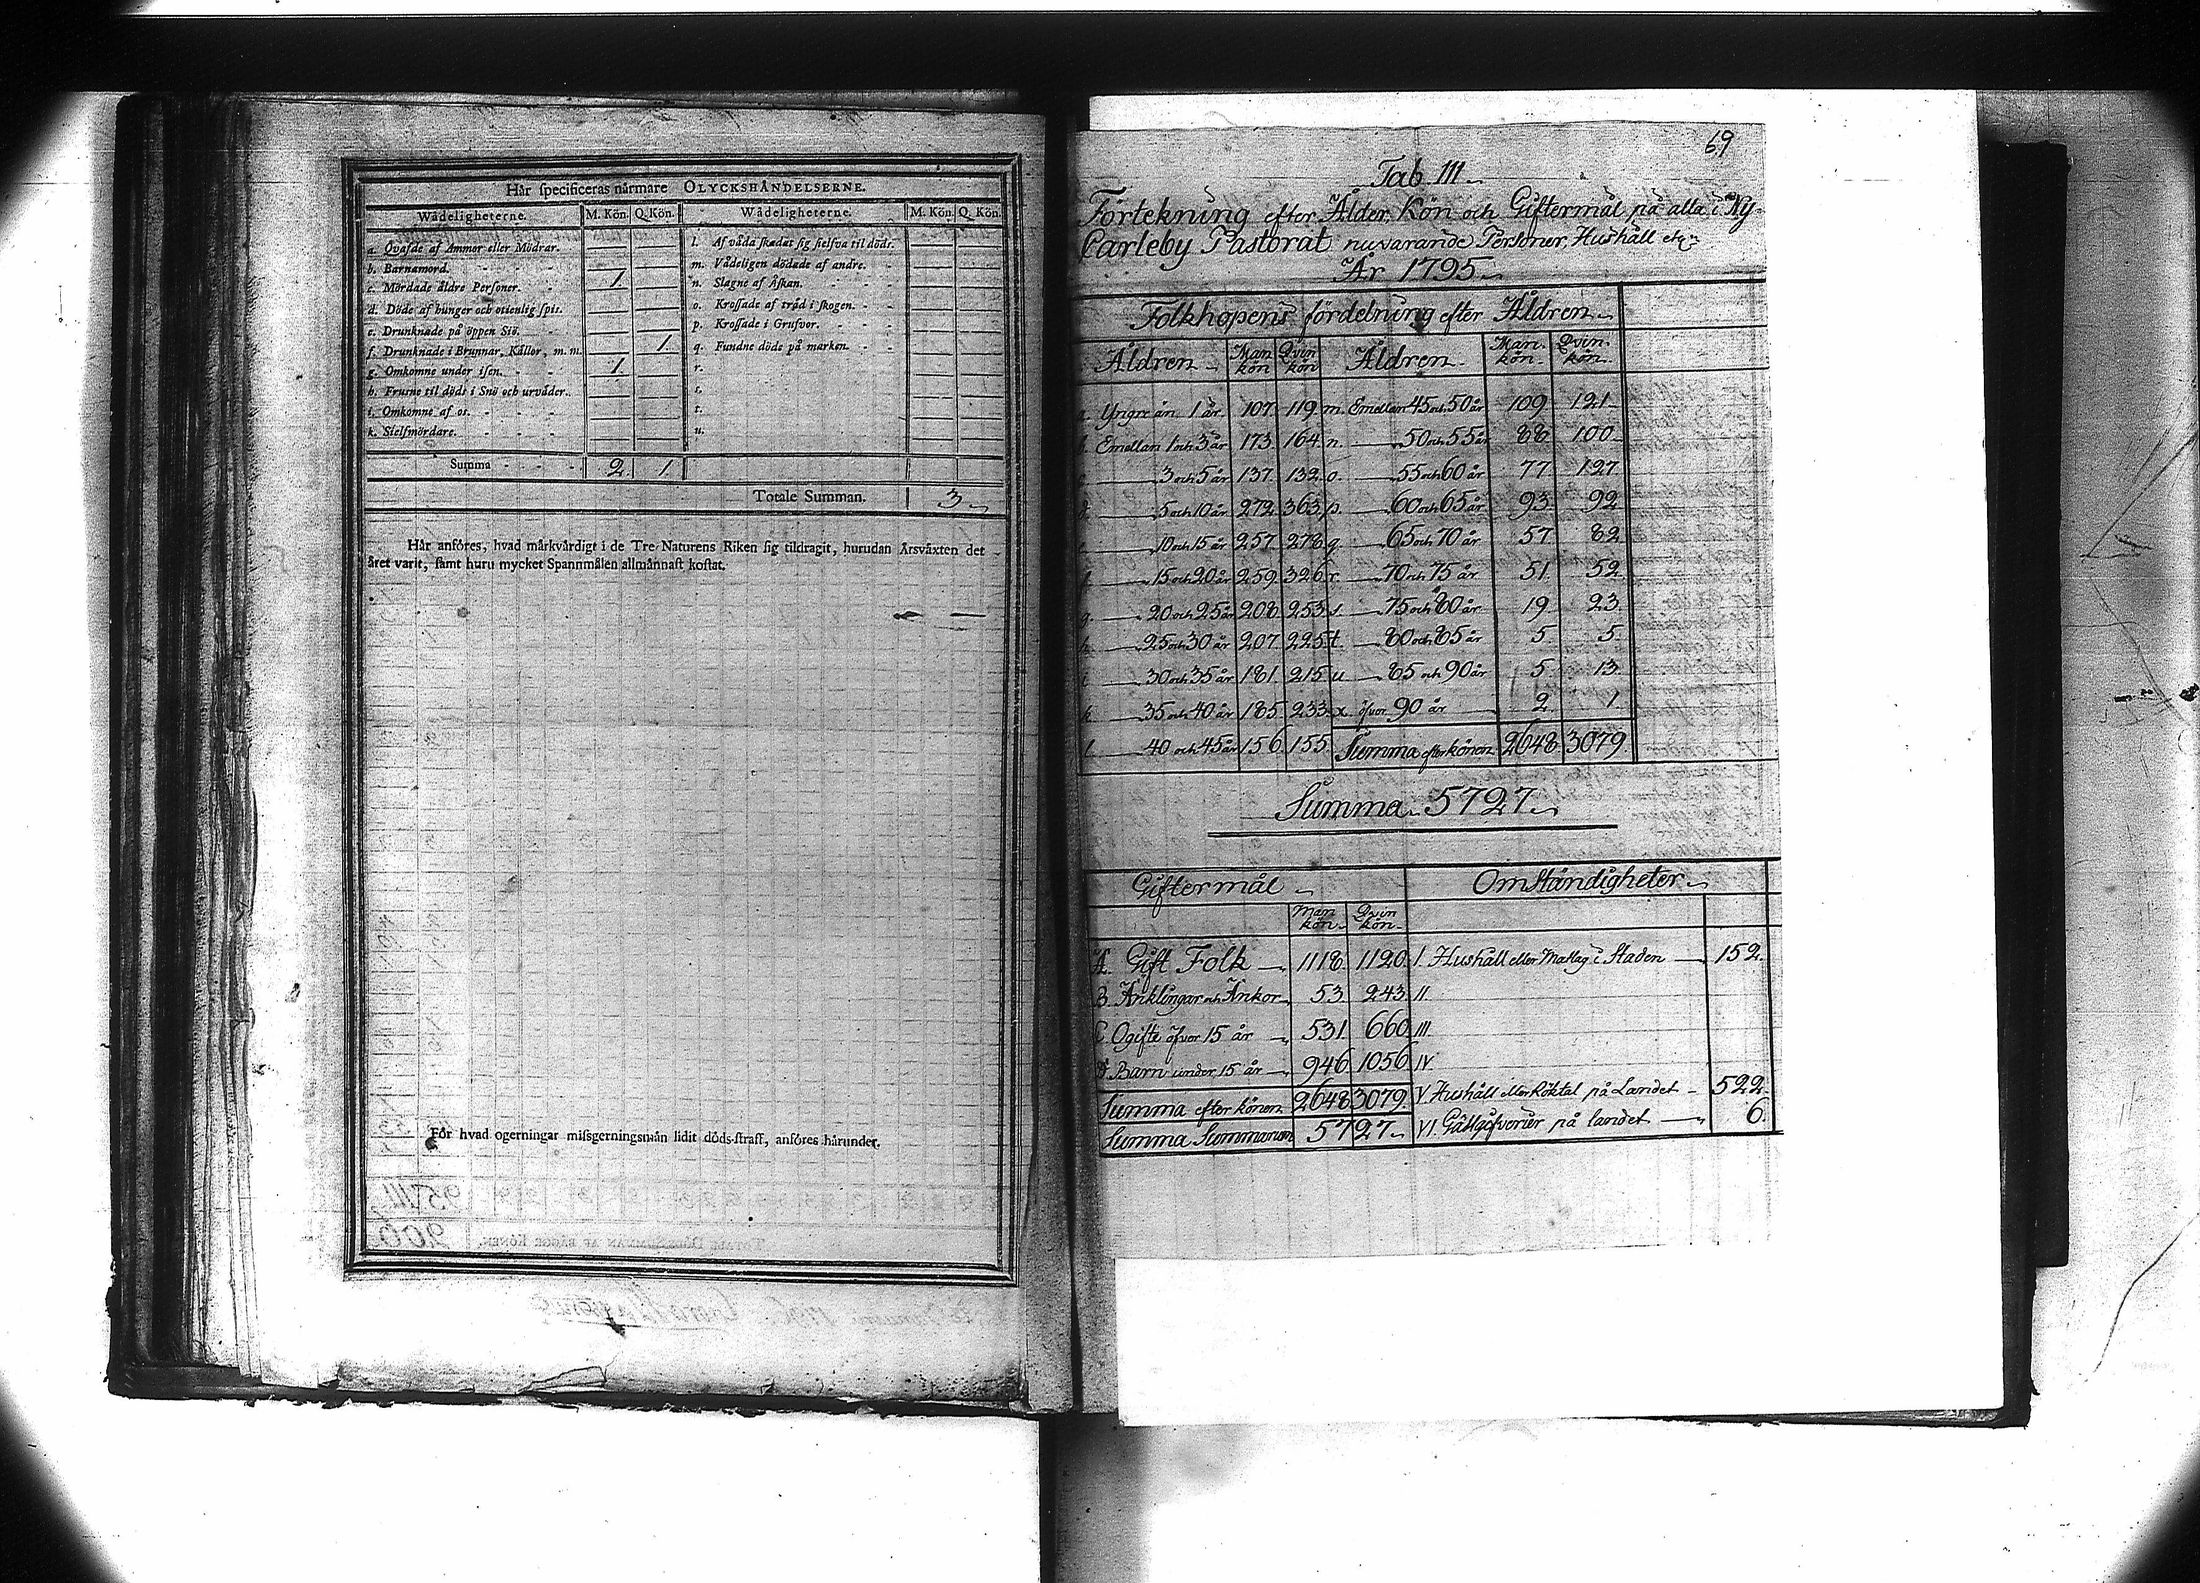 Här specificeras närmare OLYCKSHÄNDELSERNE.
Wådeligheterne. M. Kön. Q. Kön. Wådeligheterne. M. Kön. Q. Kön.
a. Qvafde af Ammor eller Mödrar. — — l. Af våda skadat sig sielfva til döds. — —
b. Barnamord. — — m. Vådeligen dödade af andre. — —
c. Mördade äldre Personer. 1. — n. Slagne af Åskan. — —
d. Döde af hunger och otienlig spis. — — o. Krossade af träd i skogen. — —
e. Drunknade på öppen Siö. — — p. Krossade i Grufvor. — —
f. Drunknade i Brunnar, Källor, m. m. — 1. q. Fundne döde på marken. — —
g. Omkomne under isen. 1. — r. — —
h. Frusne til döds i Snö och urväder. — — s. — —
i. Omkomne af os. — — t. — —
k. Sielfmördare. — — u. — —
Summa 2. 1.
Totale Summan. 3.
Här anföres, hvad märkvärdigt i de Tre Naturens Riken sig tildragit, hurudan Årsväxten det
året varit, samt huru mycket Spannmålen allmännast kostat.
För hvad ogerningar missgerningsmän lidit döds-straff, anföres härunder.
69
Tab. III.
Förtekning efter Ålder, Kön och Giftermål på alla i Ny-
Carleby Pastorat nuvarande Personer, Hushåll etc:
År 1795.
Folkhopens fördelning efter Åldren.
Åldren. Man kön Qvin kön Åldren. Man. kön. Qvin. kön.
a. Yngre än 1 år. 107. 119. m. Emellan 45 och 50 år 109 121
b. Emellan 1 och 3 år 173. 164. n. 50 och 55 år 88 100
c. 3 och 5 år 137. 132. o. 55 och 60 år 77 127
d. 5 och 10 år 272. 363. p. 60 och 65 år 93 92
e. 10 och 15 år 257. 278. q. 65 och 70 år 57 82
f. 15 och 20 år 259. 326. r. 70 och 75 år 51. 52
g. 20 och 25 år 208. 253. s. 75 och 80 år 19 23
h. 25 och 30 år 207. 225. t. 80 och 85 år 5 5
i. 30 och 35 år 181. 215. u. 85 och 90 år 5 13
k. 35 och 40 år 185. 233. x. öfver 90 år 2 1
l. 40 och 45 år 156. 155. Summa efter könen 2648 3079
Summa 5727.
Giftermål Omständigheter
Man kön. Qvin kön.
A. Gift Folk 1118. 1120. I. Hushåll eller Matlag i Staden 152.
B. Änklingar och Änkor 53. 243. II.
C. Ogifte öfver 15 år 531. 660. III.
D. Barn under 15 år 946. 1056. IV.
Summa efter könen 2648. 3079. V. Hushåll eller Röktal på Landet 522.
Summa Summarum 5727. VI. Gästgifverier på landet 6.